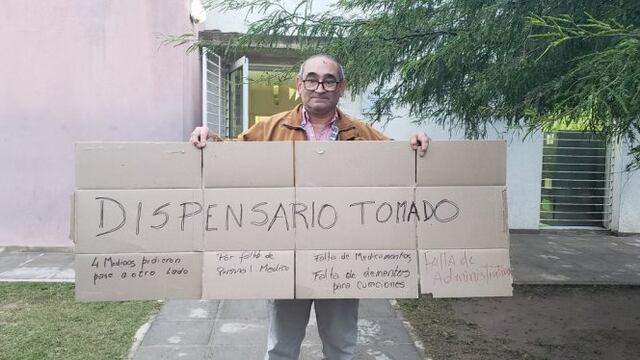 DISPENSARIO TOMADO
4 Medicos pidieron
pase a otro lado
Por falta de
Personal Medico
Falta de Medicamentos
Falta de elementos
para curaciones
Falta de
Administrativo